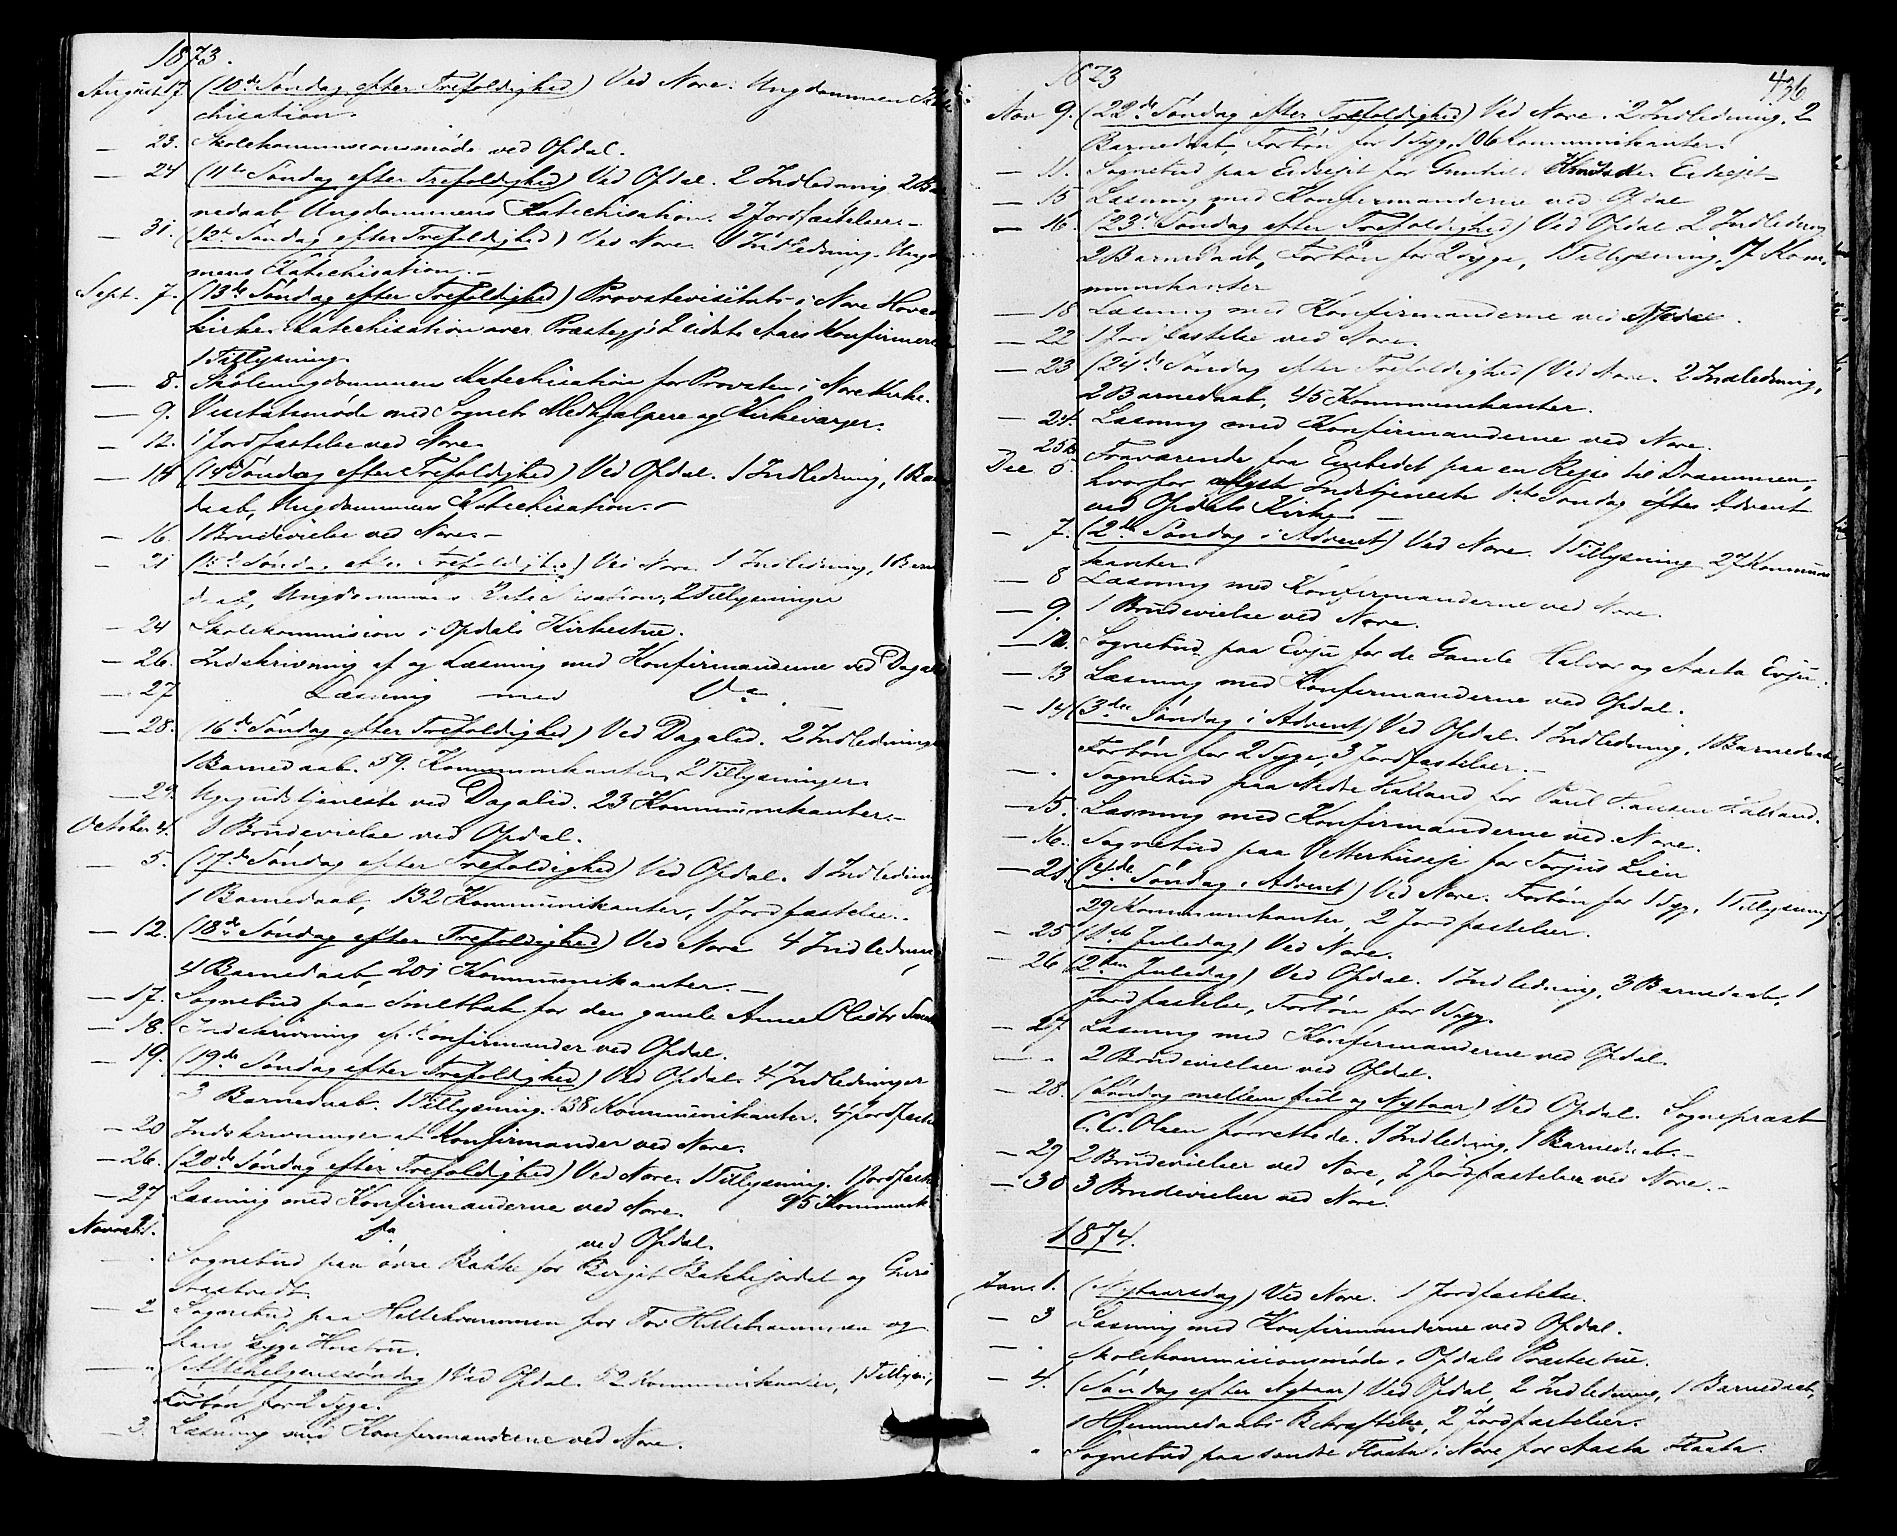 1873.
August 17 (10de Søndag efter Trefoldighed) Ved Nore. Ungdommens Kate-
chisation.
— 23. Skolekommissionsmøde ved Opdal.
— 24 (11te Søndag efter Trefoldighed) Ved Opdal. 2 Indledning. 2 Bar
nedaab Ungdommens Katechisation. 2 Jordfæstelser.-
— 31. (12te Søndag efter Trefoldighed) Ved Nore. 1 Indledning. Ungdom
mens Katechisation.-
Sept. 7. (13de Søndag efter Trefoldighed) Provstevisitats i Nore Hoved
kirke. Katechisation over Præstegj. 2 sidste Aars Konfirmere
1 Tillysning.
— 8. Skoleungdommens Katechisation for Provsten i Nore Kirke.
— 9. Visitatsmøde med Sognets Medhjælpere og Kirkeværger.
— 12. 1 Jordfæstelse ved Nore.
— 14 (14de Søndag efter Trefoldighed) Ved Opdal. 1 Indledning, 1 Barne
daab, Ungdommens Katechisation.-
— 16. 1 Brudevielse ved Nore.-
— 21 (15de Søndag efter Trefoldighed) Ved Nore 1 Indledning, 1 Barne
daab, Ungdommens Katechisation, 2 Tillysninger
— 24 Skolekommision i Opdals Kirkestue.
— 26. Indskrivning af og Læsning med Konfirmanderne ved Dagalid
— 27 Læsning med Do —
— 28. (16de Søndag efter Trefoldighed) Ved Dagalid. 2 Indledninger
1 Barnedaab. 59. Kommunikanter, 2 Tillysninger
— 29. Ugegudstjeneste ved Dagalid. 23 Kommunikanter.-
October 4. 1 Brudevielse ved Opdal.
— 5. (17de Søndag efter Trefoldighed) Ved Opdal. 1 Indledning
1 Barnedaab, 132 Kommunikanter, 1 Jordfæstelse.-
— 12. (18de Søndag efter Trefoldighed) Ved Nore 4 Indledninger
4 Barnedaab, 201 Kommunikanter.—
— 17. Sognebud paa Smetbak for den gamle Anne Olsdtr
— 18. Indskrivning af Konfirmander ved Opdal.
— 19. (19de Søndag efter Trefoldighed) Ved Opdal. 4 Indledninger
3 Barnedaab. 1 Tillysning. 138 Kommunikanter. 4 Jordfæst
— 20 Indskrivninger af Konfirmander ved Nore.
— 26. (20de Søndag efter Trefoldighed) Ved Nore 1 Tillysning. 1 Jordfæst
— 27 Læsning med Konfirmanderne ved Nore. 95 Kommunik
Novem 1. Do ved Opdal.
— . Sognebud paa øvre Bakke for Birgit Bakkejordet og Guri

— 2 Sognebud paa Hellehammeren for Tor Hellehammeren og
hans syge Hustru.
— " (Allehelgenssøndag) Ved Opdal. 52 Kommunikanter, 1 Tillysn.,
Forbøn for 2 Syge.
— 3. Læsning med Konfirmanderne ved Nore.
1873
436
Nov 9. (22de Søndag efter Trefoldighed) Ved Nore. 2 Indledning, 2
Barnedaab, Forbøn for 1 Syg, 106 Kommunikanter.
— 11. Sognebud paa Eidsejet for Gunhild Eidsejet
— 15 Læsning med Konfirmanderne ved Opdal
— 16. (23de Søndag efter Trefoldighed) Ved Opdal 2 Indledning
2 Barnedaab, Forbøn for 2 syge, 1 Tillysning, 17 Kom-
munikanter
— 18 Læsning med Konfirmanderne ved Opdal.
— 22 1 Jordfæstelse ved Nore.
— 23 (24de Søndag efter Trefoldighed) Ved Nore. 2 Indledning,
2 Barnedaab, 45 Kommunikanter.
— 24. Læsning med Konfirmanderne ved Nore.
25 Fraværende fra Embedet paa en Rejse til Drammen,
Dec 5 hvorfor aflyst Gudstjeneste 1ste Søndag efter Advent
ved Opdals Kirke —
— 7. (2den Søndag i Advent) Ved Nore. 1 Tillysning 27 Kommuni
kanter
— 8 Læsning med Konfirmanderne ved Nore.
— 9. 1 Brudevielse ved Nore.
— 12. Sognebud paa Evju for de Gamle Halvor og Aasta Evju.
— 13 Læsning med Konfirmanderne ved Opdal.
— 14 (3die Søndag i Advent) Ved Opdal. 1 Indledning, 1 Barnedaab
Forbøn for 2 Syge, 3 Jordfæstelser.—
— . Sognebud paa Nedre Halland for Paul Hansen Halland.
— 15. Læsning med Konfirmanderne ved Nore.
— 16. Sognebud paa Vetterhuseje for Torjus Lien
— 21. (4de Søndag i Advent) Ved Nore. Forbøn for 1 Syg, 1 Tillysning
29 Kommunikanter, 2 Jordfæstelser.
— 25 (1ste Juledag) Ved Nore.
— 26 (2den Juledag) Ved Opdal. 1 Indledning, 3 Barnedaab, 1
Jordfæstelse, Forbøn for 1 Syg.
— 27 Læsning med Konfirmanderne ved Opdal.
— . 2 Brudevielser ved Opdal.
— 28. (Søndag mellem Jul og Nytaar) Ved Opdal. Sognepræst
C. C. Olsen forrettede. 1 Indledning, 1 Barnedaab.-
— 29 2 Brudevielser ved Nore, 2 Jordfæstelser ved Nore.-
— 30 3 Brudevielser ved Nore.
1874.
Jan. 1. (Nytaarsdag) Ved Nore. 1 Jordfæstelse.
— 3 Læsning med Konfirmanderne ved Opdal.
— . Skolekommissionsmøde i Opdals Præstestue.
— 4. (Søndag efter Nytaar) Ved Opdal, 2 Indledning, 1 Barnedaab,
1 Hjemmedaabs Bekræftelse, 2 Jordfæstelser.
" Sognebud paa søndre Flaata i Nore for Aasta Flaata.